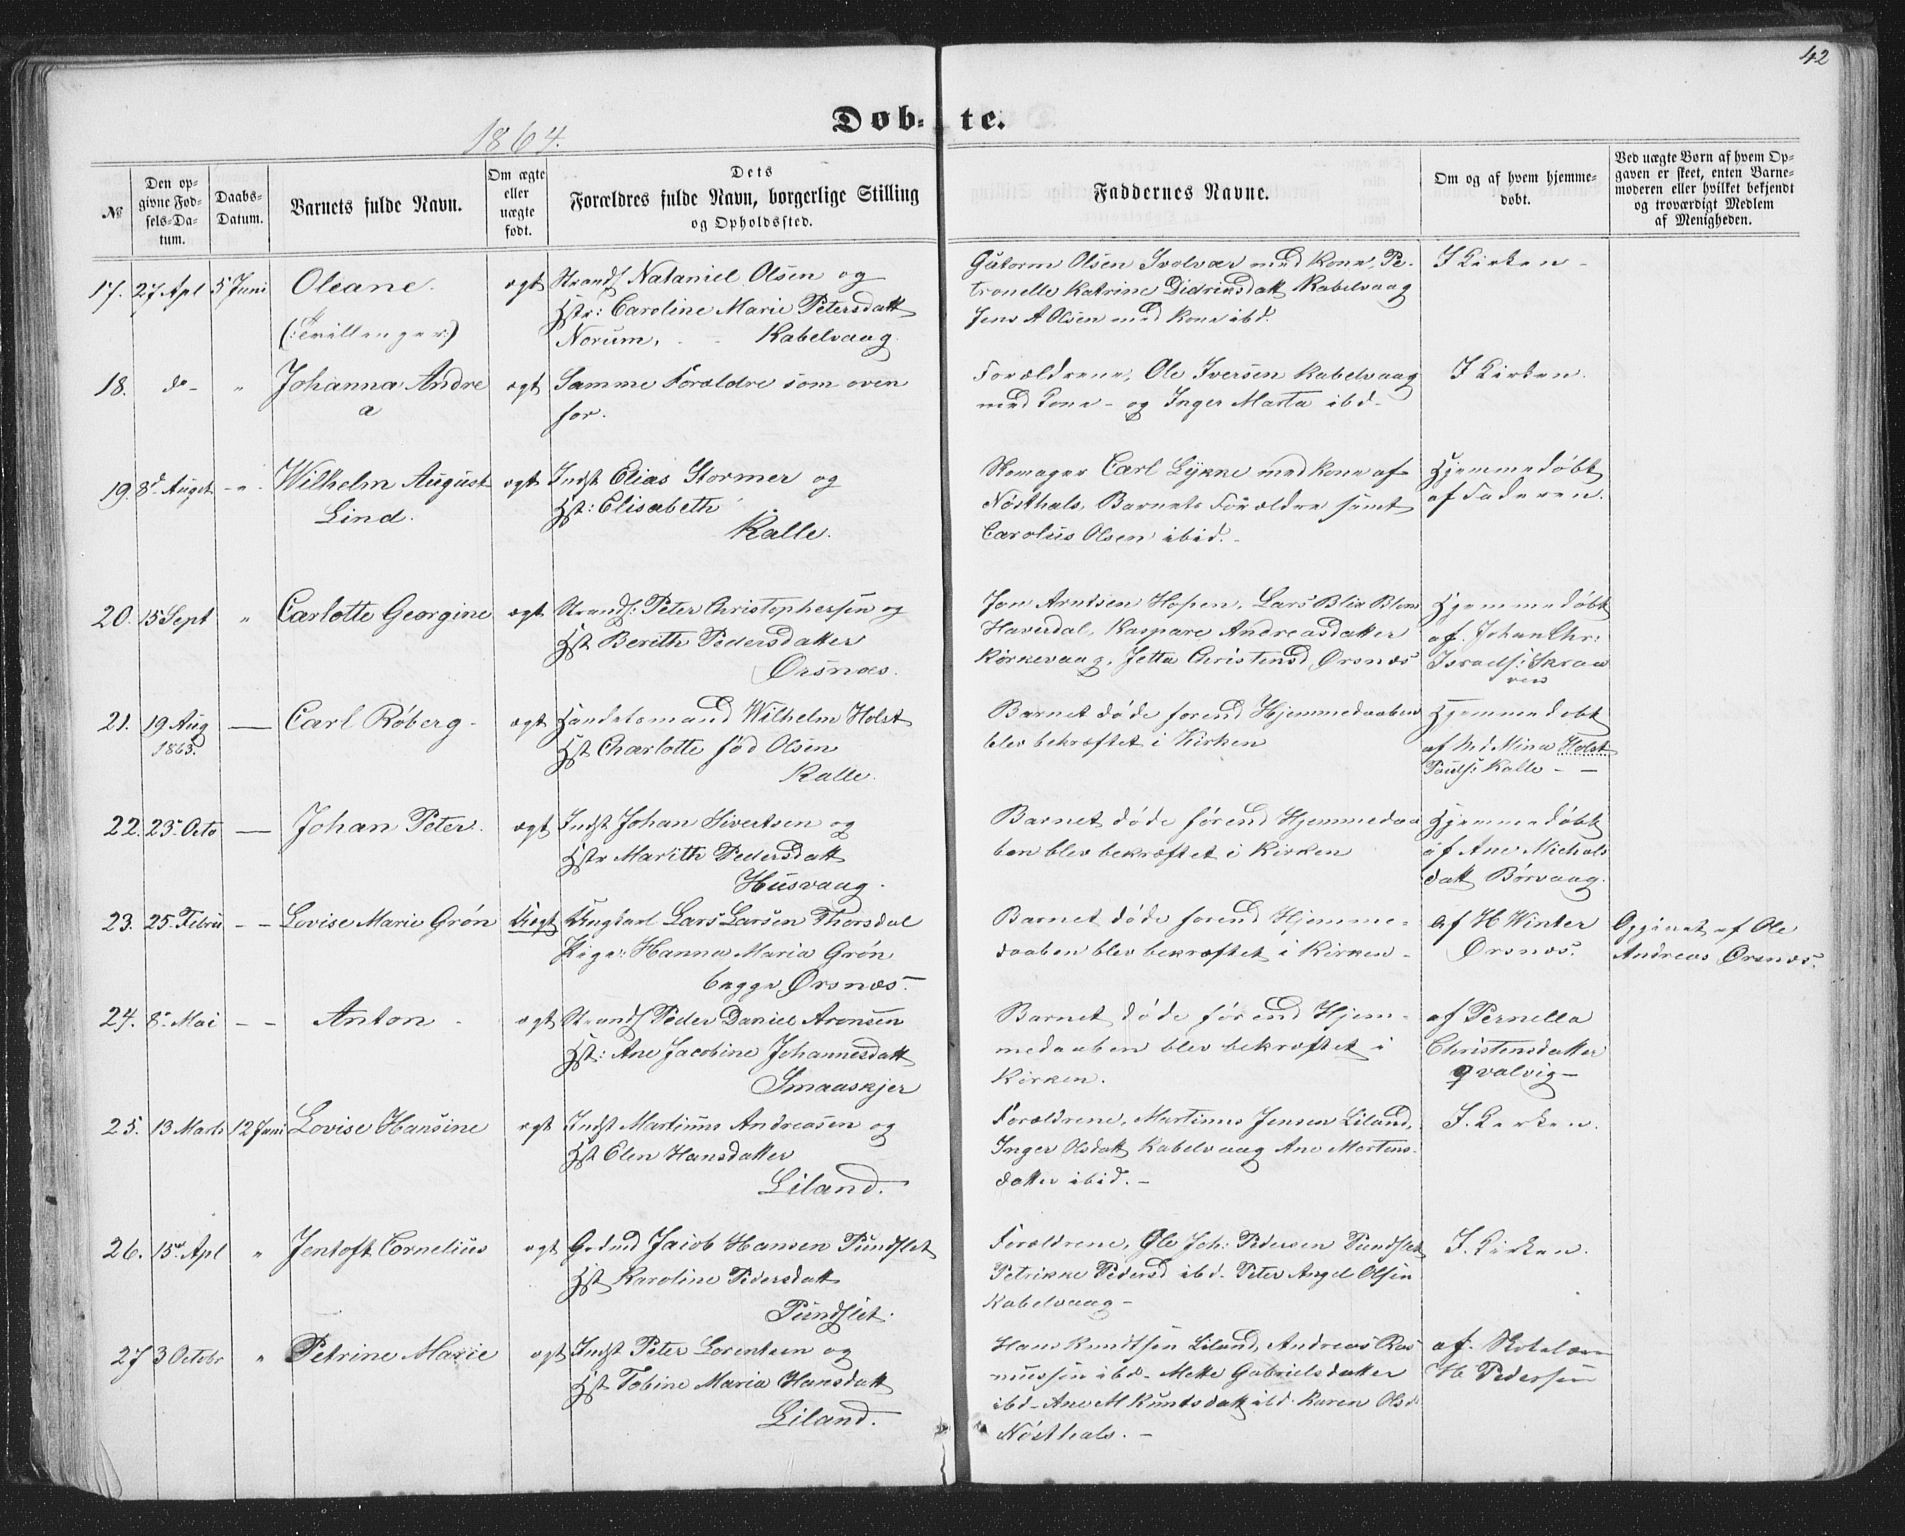 42
Døb-te.
1864.
№
Den opgivne Fødsels-Datum.
Daabs-Datum.
Barnets fulde Navn.
Om ægte eller uægte født.
Dets Forældres fulde Navn, borgerlige Stilling og Opholdssted.
Faddernes Navne.
Om og af hvem hjemmedøbt.
Ved uægte Børn af hvem Opgaven er skeet, enten Barnemoderen eller hvilket bekjendt og troværdigt Medlem af Menigheden.
17. 27 Apl 5 Juni Oleane. ægt Strands Nataniel Olsen og
(: Tvillenger :)
Hstr: Caroline Marie Petersdatt
Norum, - - Kabelvaag.
Gutorm Olsen Svolvær med Kone, Pe-
tronelle Katrine Didriksdatt Kabelvaag
Jens A Olsen med Kone ibd.
I Kirken -
18. do - " Johanna Andre
a
ægt Samme Forældre som oven
for.
Forældrene, Ole Iversen Kabelvaag
med Kone - og Inger Marta ibd -
I Kirken.
19 8d August - " - Wilhelm August
Lind.
ægt Indst Elias Stormer og
Hst: Elisabeth
Kalle.
Skomager Carl Lykke med Kone af
Nøsthals, Barnets Forældre samt
Carolus Olsen ibid. -
Hjemmedøbt
af Faderen.
20. 15 Sept " Carlotte Georgine ægt Strands: Peter Christophersen og
Hst Berith Pedersdatter
Ørsnæs.
Jon Arntsen Hopen, Lars Blix Blom
Haverdal, Kaspare Andreasdatter
Kirkevaag, Jetta Christensd Ørsnæs
Hjemmedøbt
af Johan Chr:
Israels: Skraa
ven
21. 19 Aug
1863.
— Carl Røberg - ægt Handelsmand Wilhelm Holst
Hst Charlotte fød Olsen
Kalle.
Barnet døde forend Hjemmedaaben
blev bekræftet i Kirken
Hjemmedøbt
af Md Mina Holst
Pauls: Kalle - —
22. 23 Octo — Johan Peter. ægt Indst Johan Sivertsen og
Hstr Marith Pedersdatt
Husvaag.
Barnet døde førend Hjemmedaa
ben blev bekræftet i Kirken
Hjemmedøbt
af Ane Michels
datt Børvaag.
23. 25. Febru - - Lovise Marie Grøn Uægt Ungkarl Lars Larsen Thorsdal
Pige: Hanna Maria Grøn
begge Ørsnæs.
Barnet døde forend Hjemme-
daaben blev bekræftet i Kirken -
af H Winter
Ørsnæs.
Opgivet af Ole
Andreas Ørsnæs.
24. 8. Mai - - Anton - ægt Strands Peder Daniel Aronsen
Hst: Ane Jacobine Johannesdatt
Smaaskjer
Barnet døde førend Hjem-
medaaben blev bekræftet i
Kirken.
af Pernella
Christensdatter
Qvalvig —
25. 13 Marts 12 Juni Lovise Hansine ægt Indst Martinus Andreasen og
Hst Elen Hansdatter
Liland.
Forældrene, Martinus Jensen Liland,
Inger Olsdatt Kabelvaag Ane Mortens-
datter ibid. -
I. Kirken.
26. 15de Apl " Jentoft Cornelius ægt Grdmd Jacob Hansen Pundslet
Hst Karoline Pedersdatt
Pundslet.
Forældrene, Ole Joh: Pedersen Pundslet
Petrikke Pedersd ibd. Peter Angel Olsen
Kabelvaag -
I. Kirken.
27 3 Octobr " Petrine Marie ægt Indst Peter Lorentsen og
Hst Tobine Maria Hansdatt
Liland.
Hans Knudtsen Liland, Andreas Ras
mussen ibd - Mette Gabrielsdatter
ibd - Ane M Knudsdatt ibd. Karen Olsd.
Nøsthals. -
af Skolelærer
H. Pedersen